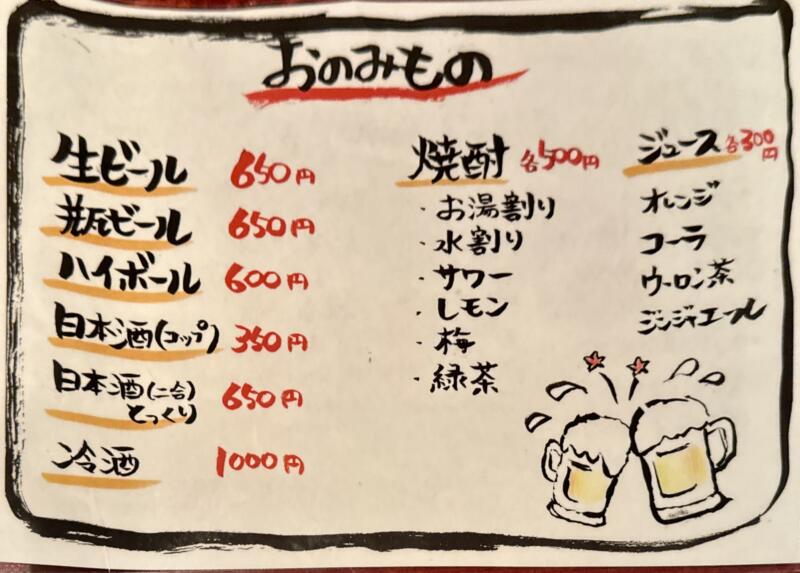 おのみもの
生ビール 650円
瓶ビール 650円
ハイボール 600円
日本酒(コップ) 350円
日本酒(二合) 650円
とっくり
冷酒 1000円
焼酎 各500円
・お湯割り
・水割り
・サワー
・レモン
・梅
・緑茶
ジュース 各300円
オレンジ
コーラ
ウーロン茶
ジンジャエール